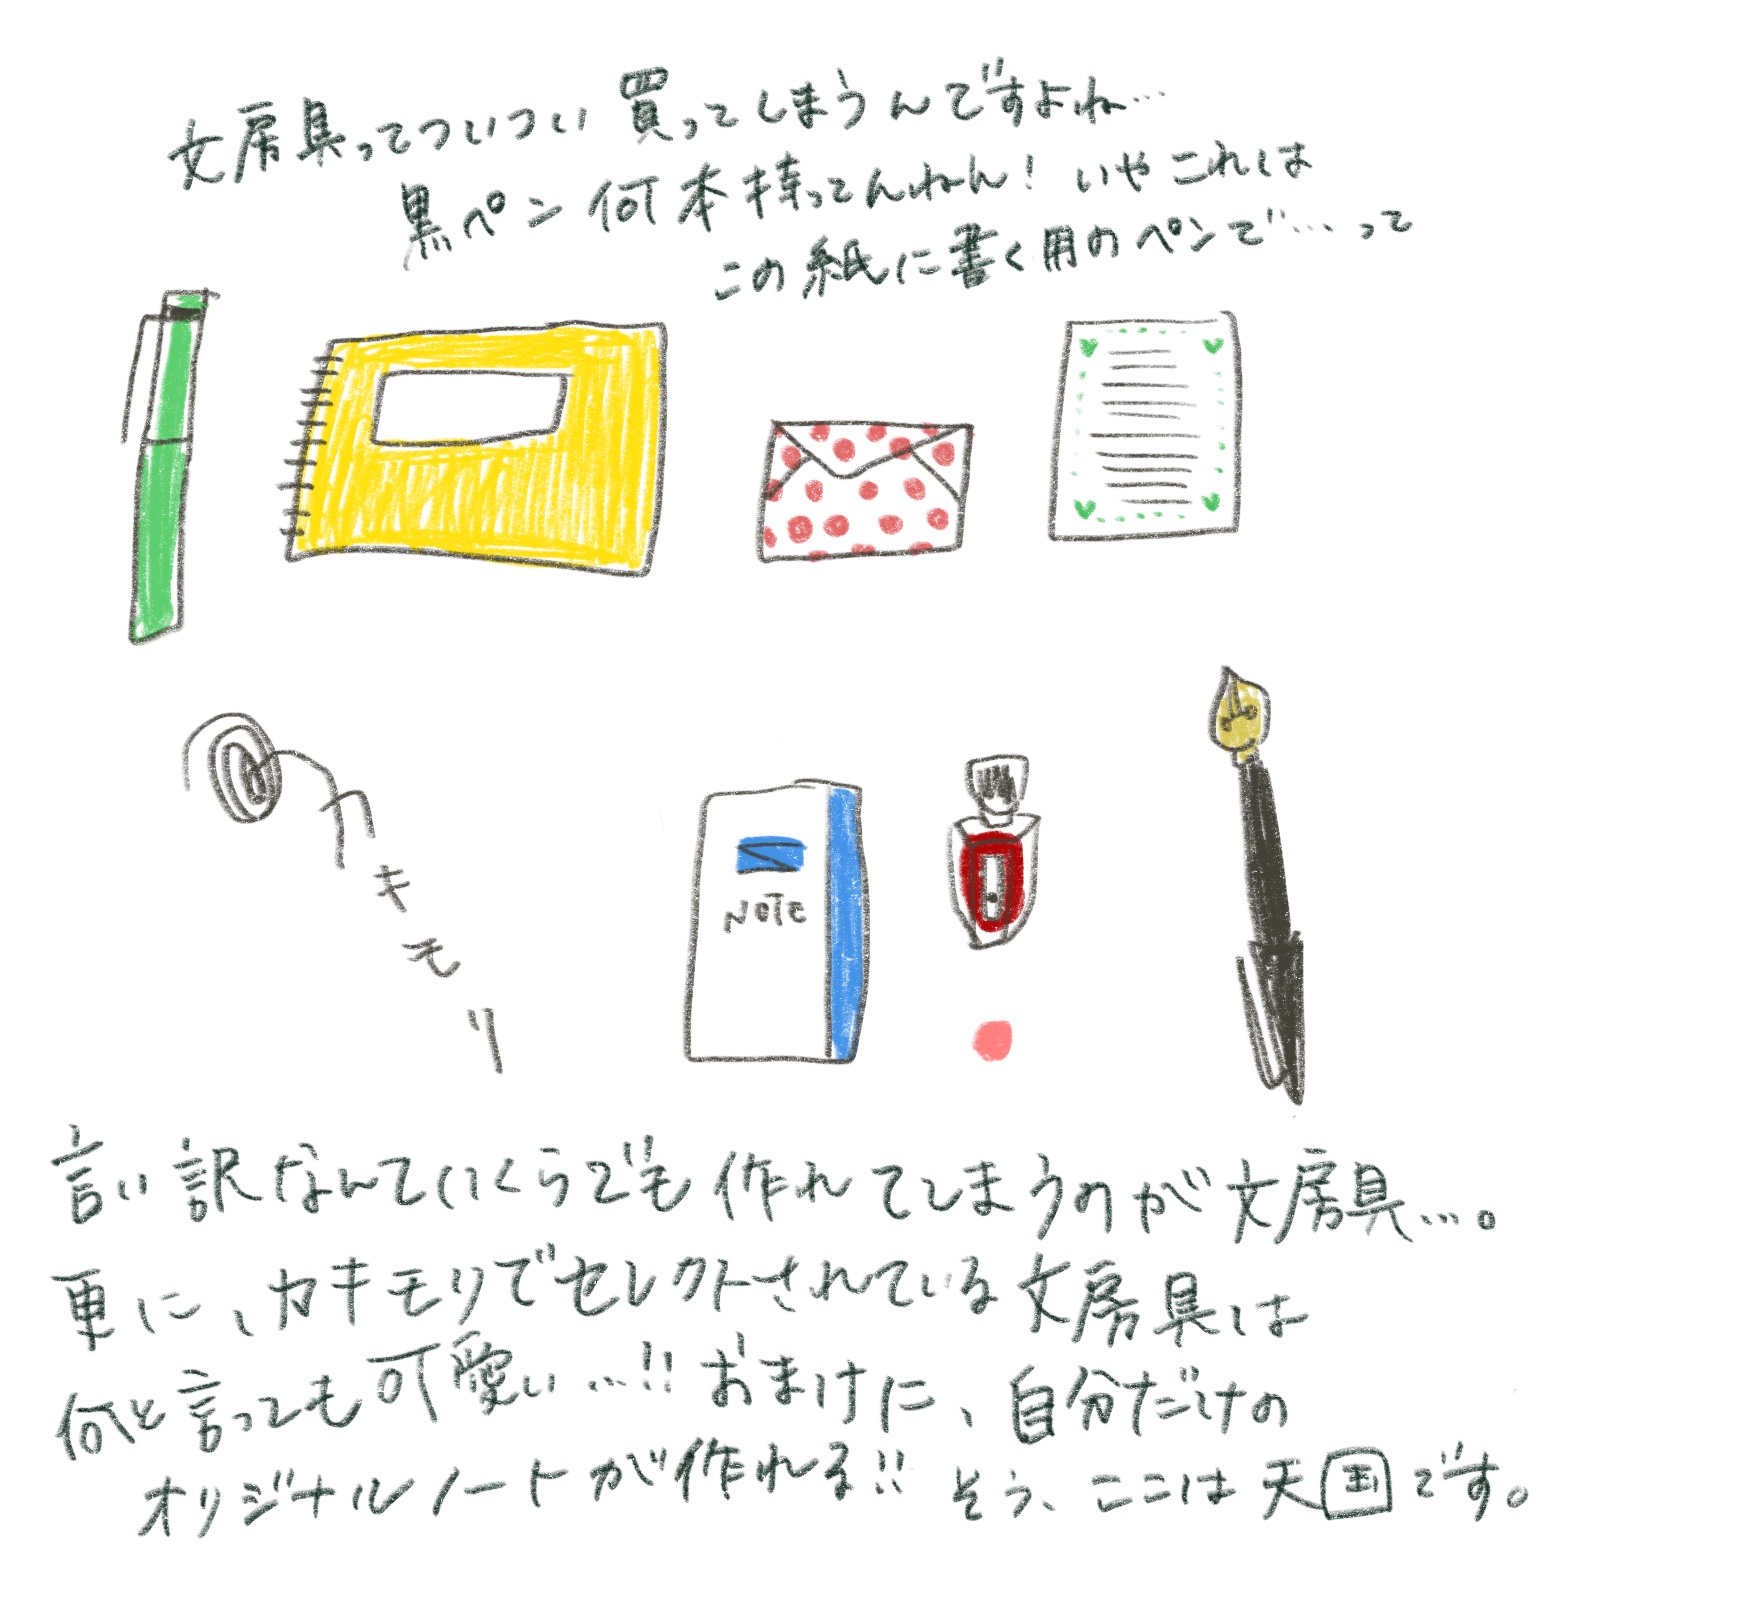 文房具ってついつい買ってしまうんですよね…
黒ペン何本持ってんねん！いやこれは
この紙に書く用のペンで…って
カキモリ
NOTE
言い訳なんていくらでも作れてしまうのが文房具…。
更に、カキモリでセレクトされている文房具は
何と言っても可愛い…!!おまけに、自分だけの
オリジナルノートが作れる!!そう、ここは天国です。